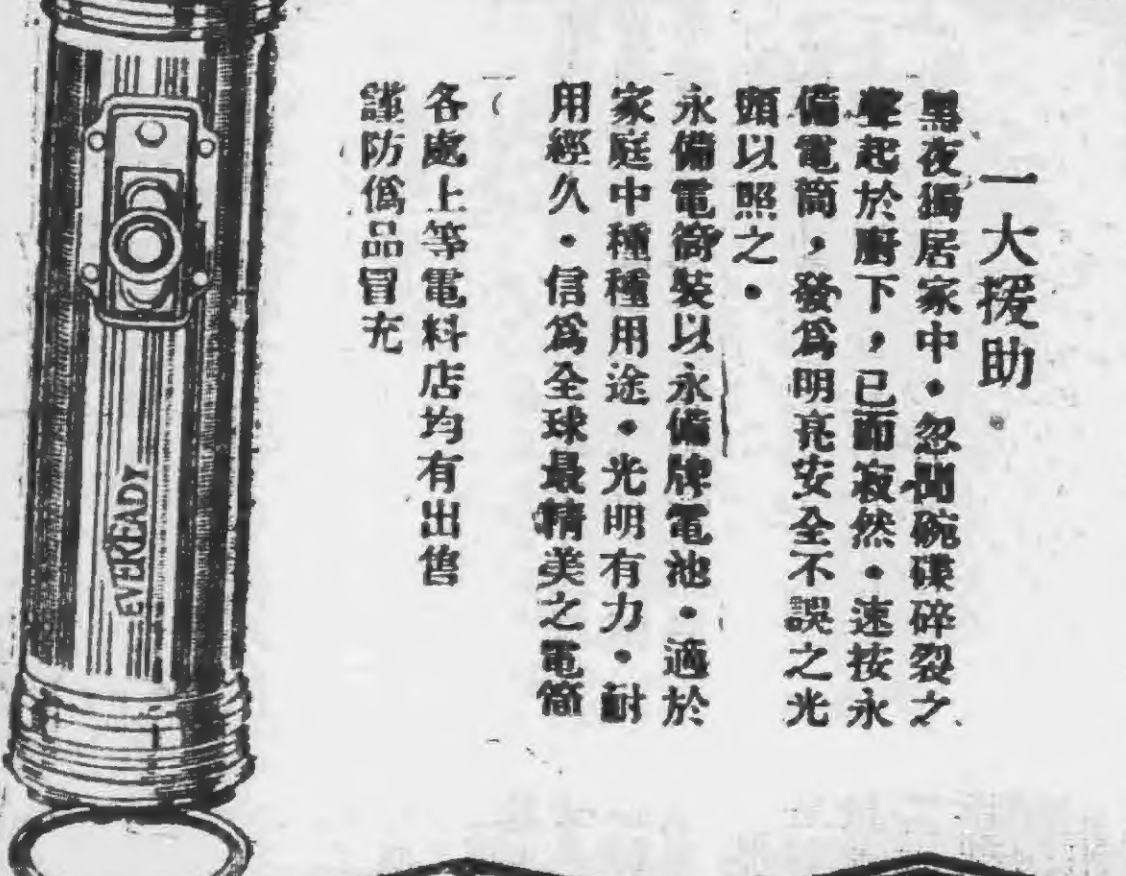 一大援助
黑夜獨居家中・忽聞碗碟碎裂之
聲起於廚下，已而寂然・速按永
備電筒，發爲明亮安全不誤之光
頭以照之・
永備電筒裝以永備牌電池・適於
家庭中種種用途・光明有力・耐
用經久・信爲全球最精美之電筒
各處上等電料店均有出售
謹防僞品冒充
EVEREADY